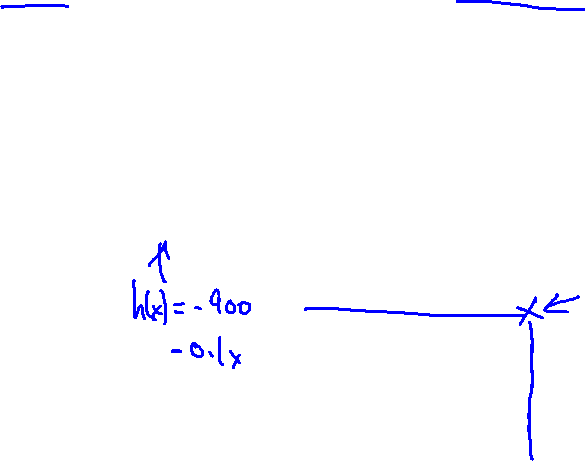 h(x) = -900
-0.1x